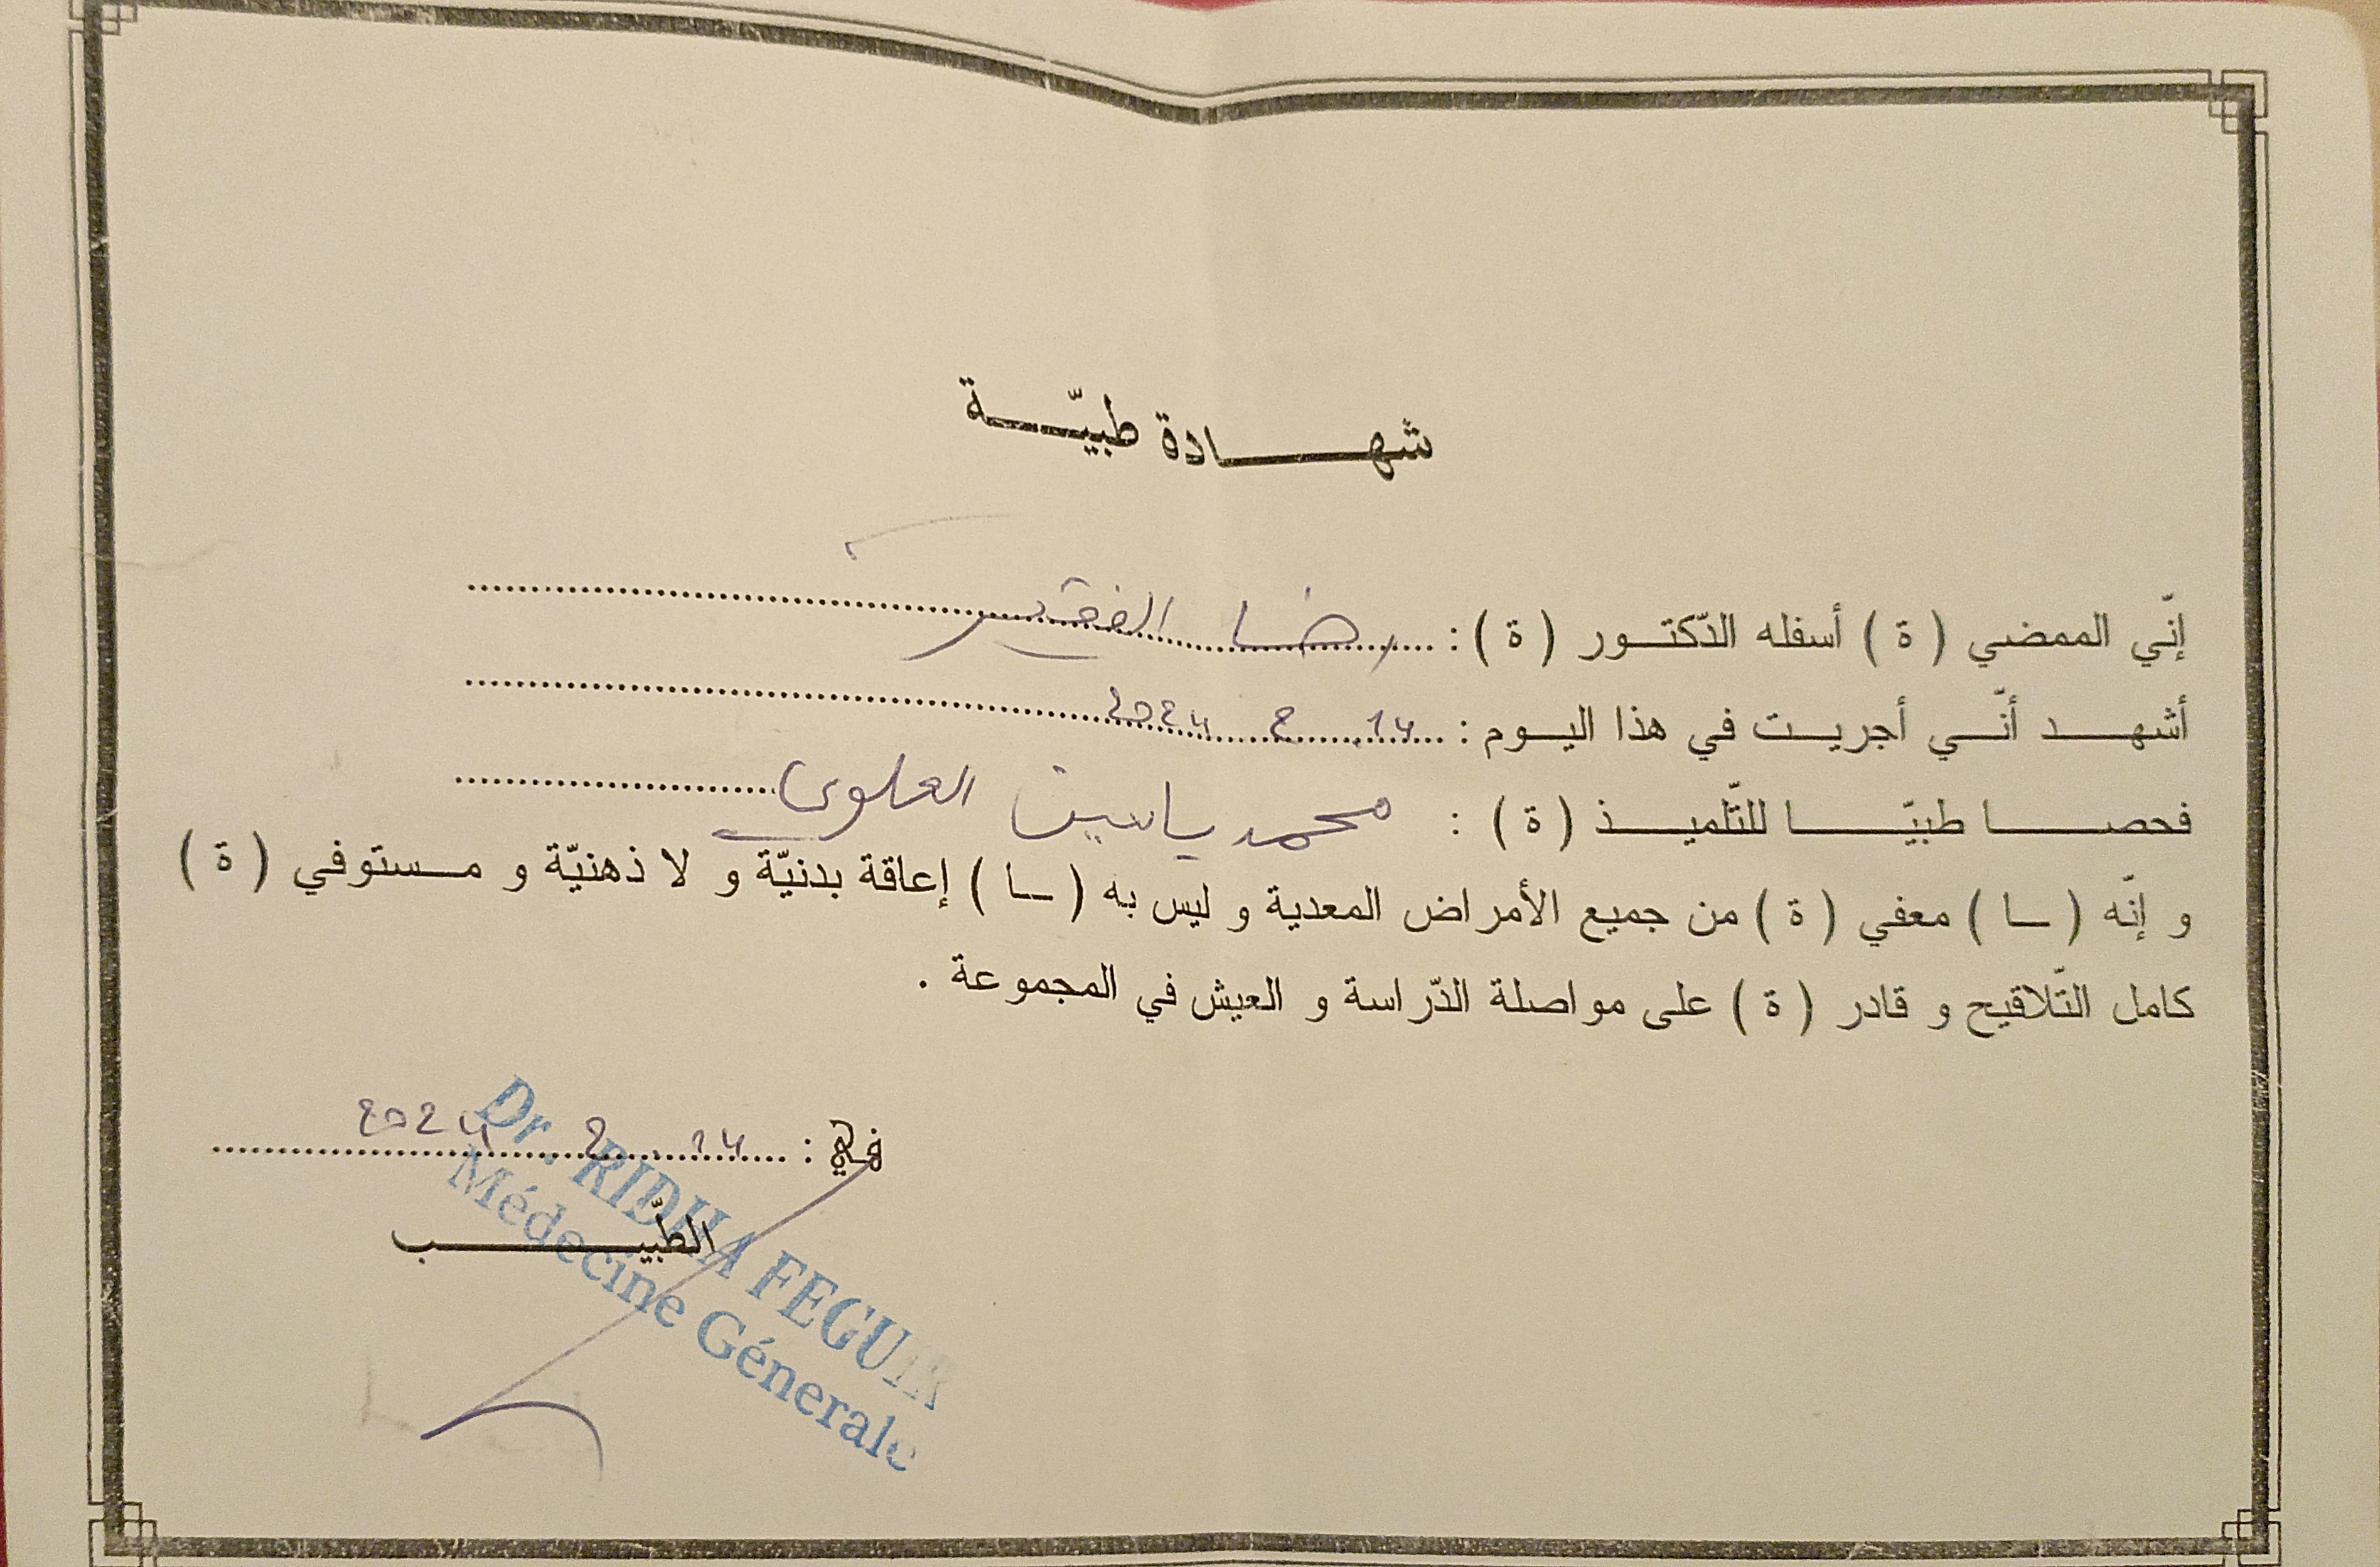 شهادة طبيّة
إنّي الممضي ( ة ) أسفله الدّكتور ( ة ) : رضا الفقير
أشهد أنّي أجريت في هذا اليوم : 14 2 2024
فحصا طبيّا للتّلميذ ( ة ) : محمد ياسين العلوي
و إنّه ( ـا ) معفي ( ة ) من جميع الأمراض المعدية و ليس به ( ـا ) إعاقة بدنيّة و لا ذهنيّة و مستوفي ( ة )
كامل التّلاقيح و قادر ( ة ) على مواصلة الدّراسة و العيش في المجموعة .
في : 14 2 2024
الطّبيب
Dr. RIDHA FEGUIR
Médecine Génerale